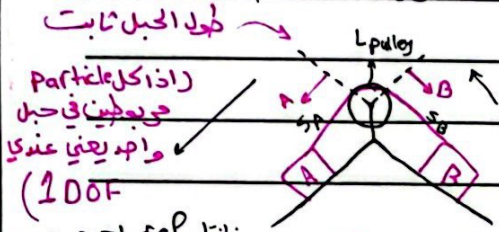 طول الحبل ثابت
L pulley
(اذا كل Particle
مربوطين في حبل
واحد يعني عندي
(1 DOF
A
B
SA
SB
A
B